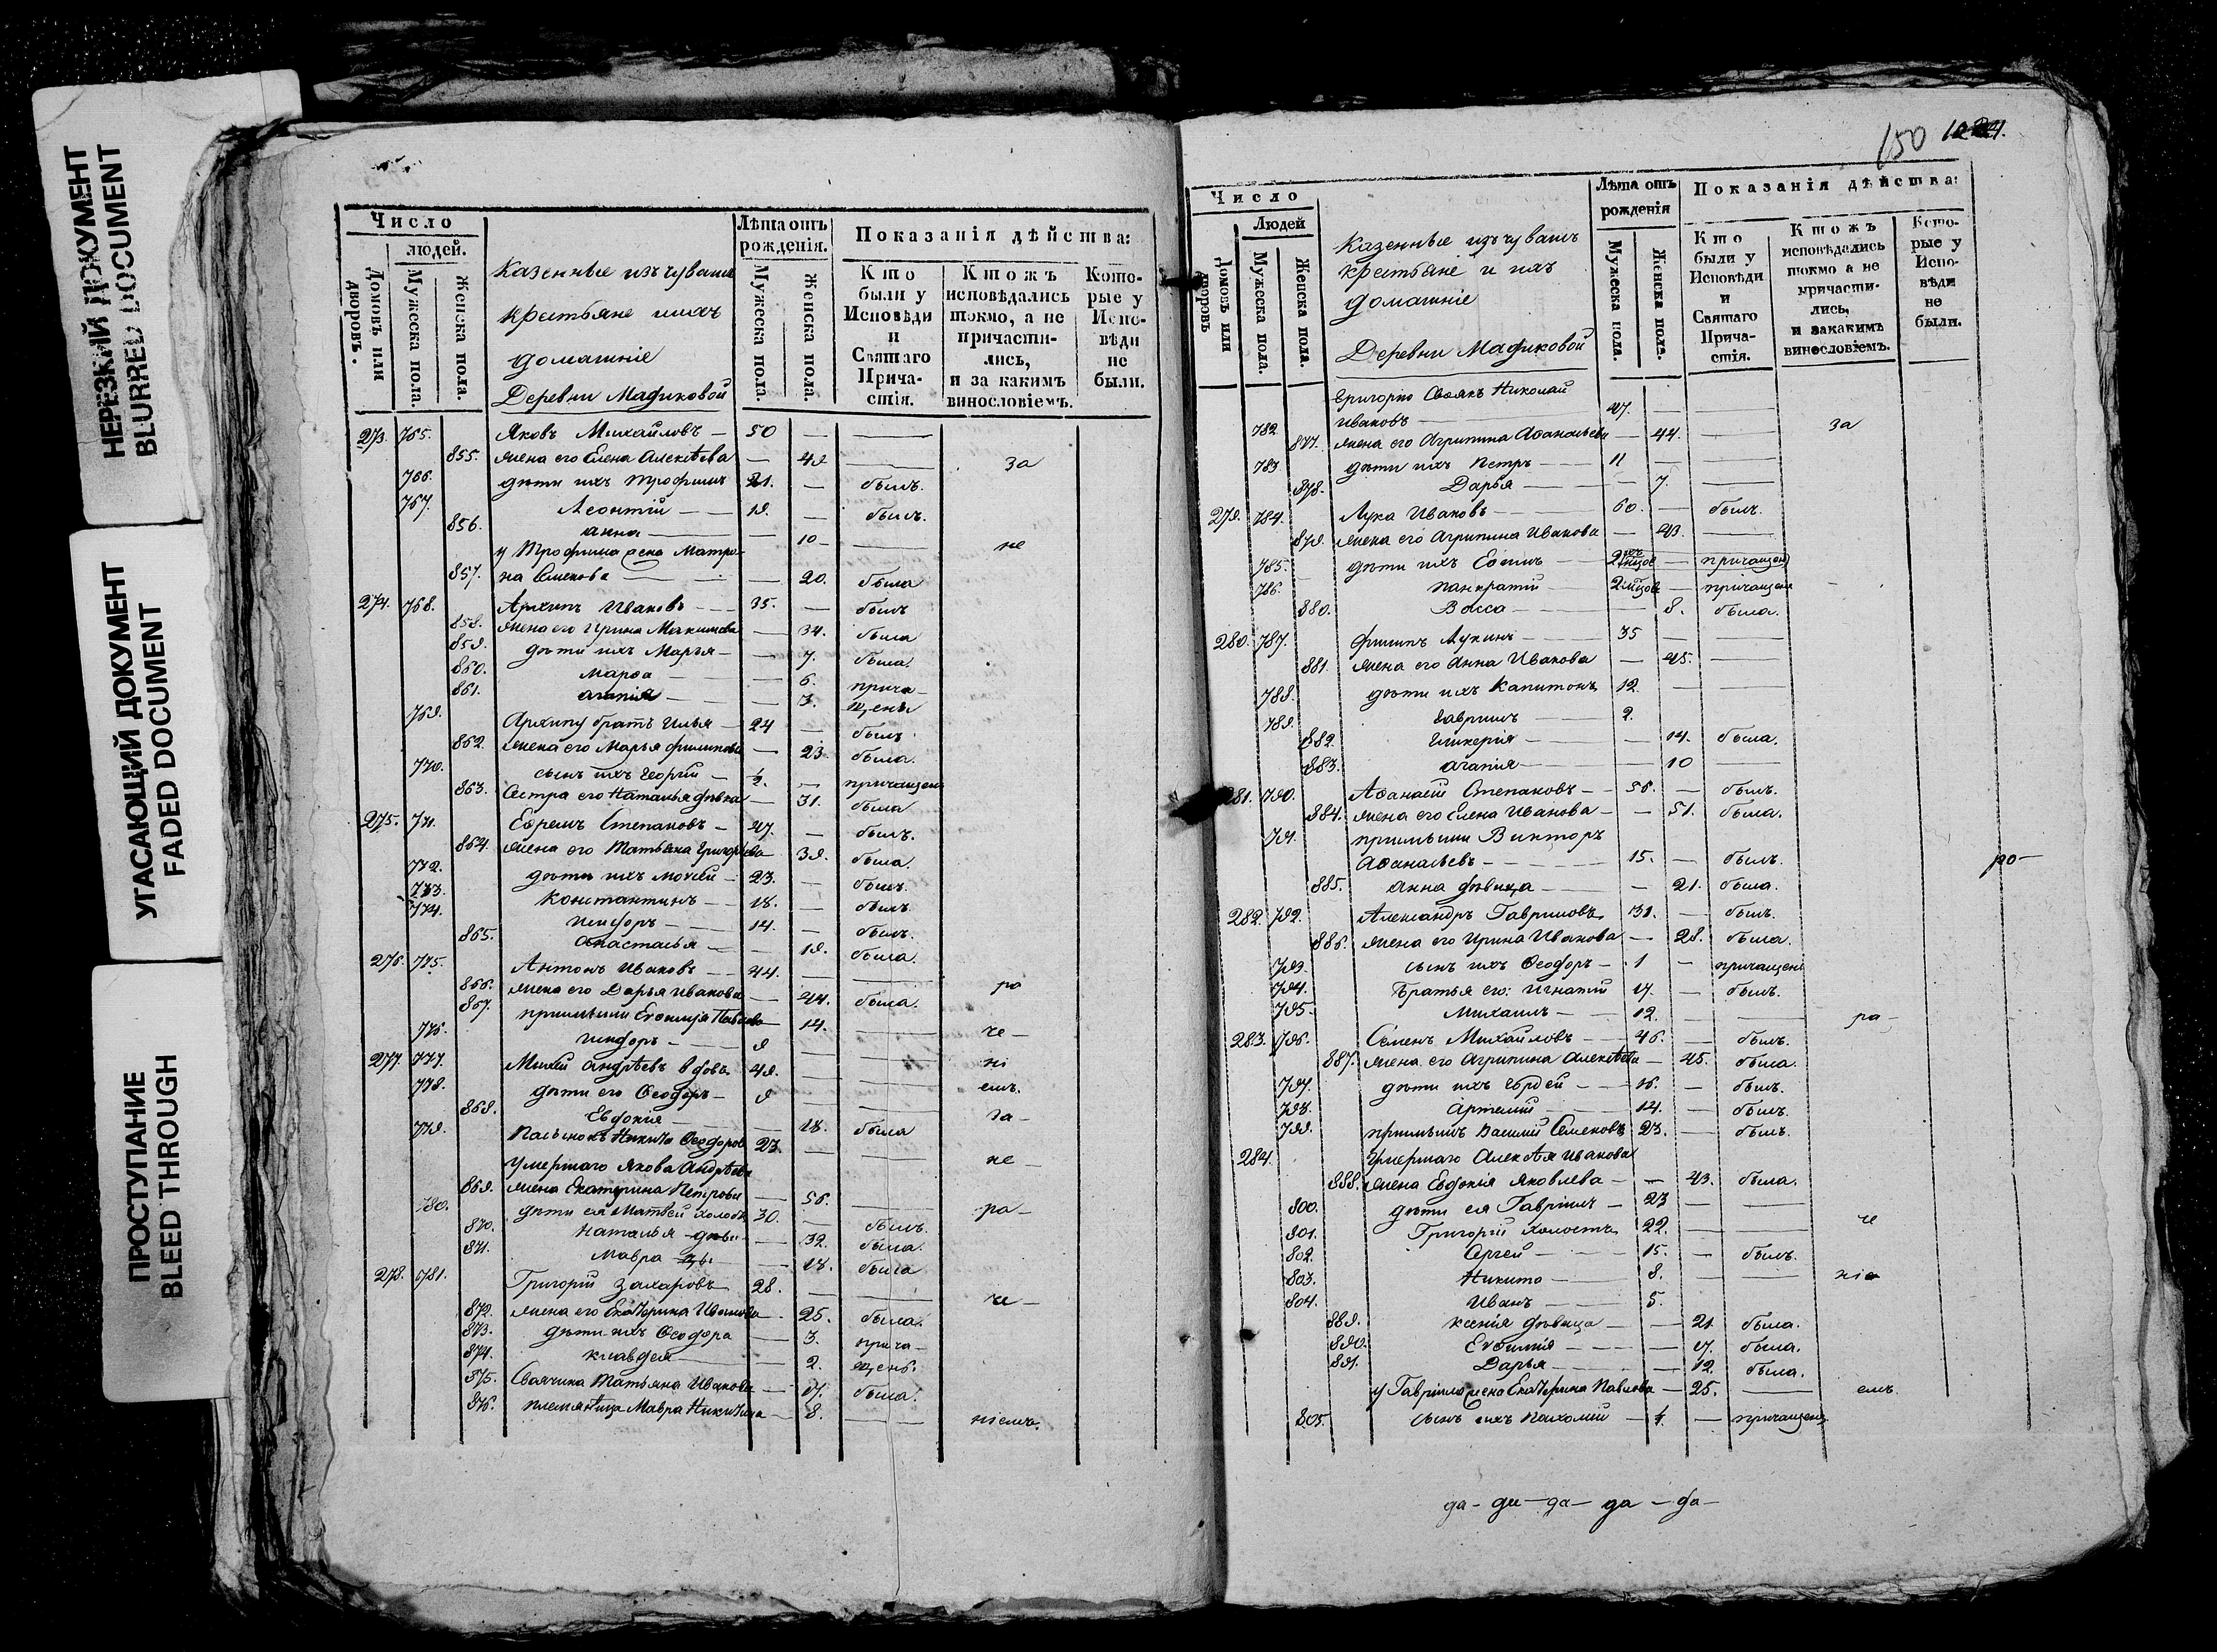 НЕРЕЗКИЙ ДОКУМЕНТ
BLURRED DOCUMENT
УГАСАЮЩИЙ ДОКУМЕНТ
FADED DOCUMENT
ПРОСТУПАНИЕ
BLEED THROUGH
Число
людей.
Домовъ или дворовъ.
Мужеска пола.
Женска пола.
Казенные изъ чувашъ
крестьяне и ихъ
домашніе
Деревни Мадиковой
Лѣта отъ рожденія.
Мужеска пола.
Женска пола.
Показанія дѣйства:
Кто были у Исповѣди и Святаго Прича-стія.
Ктожъ исповѣдались токмо, а не причасти-лись, и за какимъ винословіемъ.
Кото-рые у Испо-вѣди не были.
273. 765. Яковъ Михайловъ — 50 — —
855. жена его Елена Алексѣева — 49 — за
766. дѣти ихъ Трофимъ 21. — былъ.
767. Леонтій — 19. — былъ.
856. анна — 10 — не
у Трофима жена Матро-
857. на Семенова — 20. была
274. 768. Архипъ Ивановъ — 35. — былъ
858. жена его Ирина Максимова — 34. была
859. дѣти ихъ Марья — 7. была.
860. Марѳа — 6. прича-
861. агапія — 3. щены
769. Архипу братъ Илья — 24 — былъ.
862. жена его Марья Филипова — 23. была.
770. сынъ ихъ Георгій — ½. — причащенъ
863. Сестра его Наталья дѣвка — 31. была
275. 771. Ефремъ Степановъ — 47. — былъ.
864. жена его Татьяна Григорьева 39. была.
772. дѣти ихъ Мокей — 23. — былъ.
773. Константинъ — 18. — былъ.
774. Никифоръ — 14. — былъ.
865. Анастасья — 19. была.
276. 775. Антонъ Ивановъ — 44. — —
866. жена его Дарья Иванова — 44. была. ра
867. приимыши Евѳимія Павлова 14. — че-
776. Никифоръ — 9 — —
277. 777. Андрѣевъ вдовъ 49. — — ні
778. дѣти его Ѳеодоръ — 9 — — емъ.
868. Евдокія — 18. была за-
779. Пасынокъ Никита Ѳеодоровъ 23. — —
Умершаго Якова Андрѣева не-
869. жена Екатерина Петрова — 56. —
780. дѣти ея Матвей холостъ 30. — былъ. ра-
870. Наталья дѣв. — 32. была.
871. Мавра — 18. была
278. 781. Григорій Захаровъ — 28. — — че-
872. жена его Екатерина Иванова — 25. была.
873. дѣти ихъ Ѳеодора — 3. прича-
874. Клавдея — 2. щены.
875. Своячина Татьяна Иванова — 17. была.
876. племянница Мавра Никитина — 8. — ніемъ.
150
Число
Людей
Домовъ или дворовъ
Мужеска пола.
Женска пола.
Казенные изъ чувашъ
крестьяне и ихъ
домашніе
Деревни Мадиковой
Лѣта отъ рожденія
Мужеска пола.
Женска пола.
Показанія дѣйства:
Кто были у Исповѣди и Святаго Прича-стія.
Ктожъ исповѣдались токмо а не причасти-лись, и за какимъ винословіемъ.
Кото-рые у Испо-вѣди не были.
Григорію Своякъ Николай
782. Ивановъ — 47. — — за
877. жена его Агрипина Аѳанасьева — 44. —
783. дѣти ихъ Петръ — 11 — —
878. Дарья — 7. —
279. 784. Лука Ивановъ — 60. — былъ.
879. жена его Агрипина Иванова — 43. —
785. дѣти ихъ Евѳимъ — — причащенъ
786. Панкратій — — причащенъ
880. Васса — 8. была.
280. 787. Филипъ Лукинъ — 35 — —
881. жена его Анна Иванова — 45. —
788. дѣти ихъ Капитонъ 12. — —
789. Гаврилъ — 2.
882. Гликерія — 14. была.
883. Агапія — 10 —
281. 790. Аѳанасій Степановъ — 56. — былъ.
884. жена его Елена Иванова — 51. была.
791. приимыши Викторъ
Аѳанасьевъ — 15. — былъ. ро-
885. анна дѣвица — 21. была.
282. 792. Александръ Гавриловъ 31. — былъ.
886. жена его Ирина Иванова — 28. была.
793. сынъ ихъ Ѳеодоръ — 1 — причащенъ
794. Братья его: Игнатій 17. — былъ.
795. Михаилъ — 12. — — ра-
283. 796. Семенъ Михайловъ — 46. — былъ.
887. жена его Агрипина Алексѣева — 45. была.
797. дѣти ихъ — 16. — былъ.
798. Артемій 14. — былъ.
799. приимышъ Василій Семеновъ 23. — былъ.
284. Умершаго Алексѣя Иванова
888. жена Евдокія Яковлева — 43. была.
800. дѣти ея Гавріилъ — 23 — —
801. Григорій холостъ 22. — — че
802. Сергей — 15. — былъ.
803. Никита — 8. — — ніе
804. Иванъ — 5.
889. Ксенія дѣвица — 21. была.
890. Евѳимія — 17. была.
891. Дарья — 12. была.
у Гавріила жена Екатерина Павлова — 25. — емъ.
805. сынъ ихъ Пахомій — ½. — причащенъ
да- ди- да- да - да-